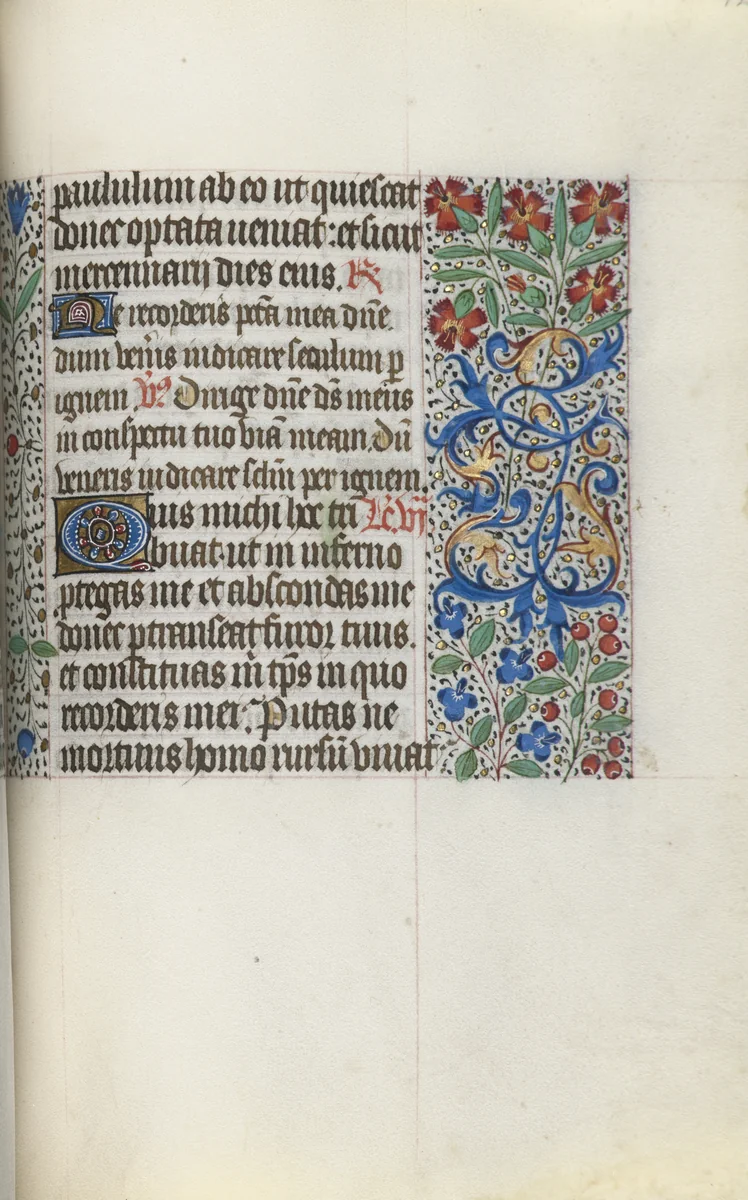 paululum ab eo ut quiescat
donec optata ueniat: et sicut
mercennarij dies eius. R̃
Ne recorderis pctã mea dñe
dum veñis iudicare seculum p̱
ignem. V̊s Dirige dñe ds̃ meus
in conspectu tuo viã meam. Dũ
veneris iudicare sclm̃ per ignem.
Quis michi hoc tri Lc̃. vij
buat. ut in inferno
ptegas me et abscondas me
donec ptranseat furor tuus.
et constituas m̃ tp̃s in quo
recorderis mei. Putas ne
mortuus homo rursũ viuat